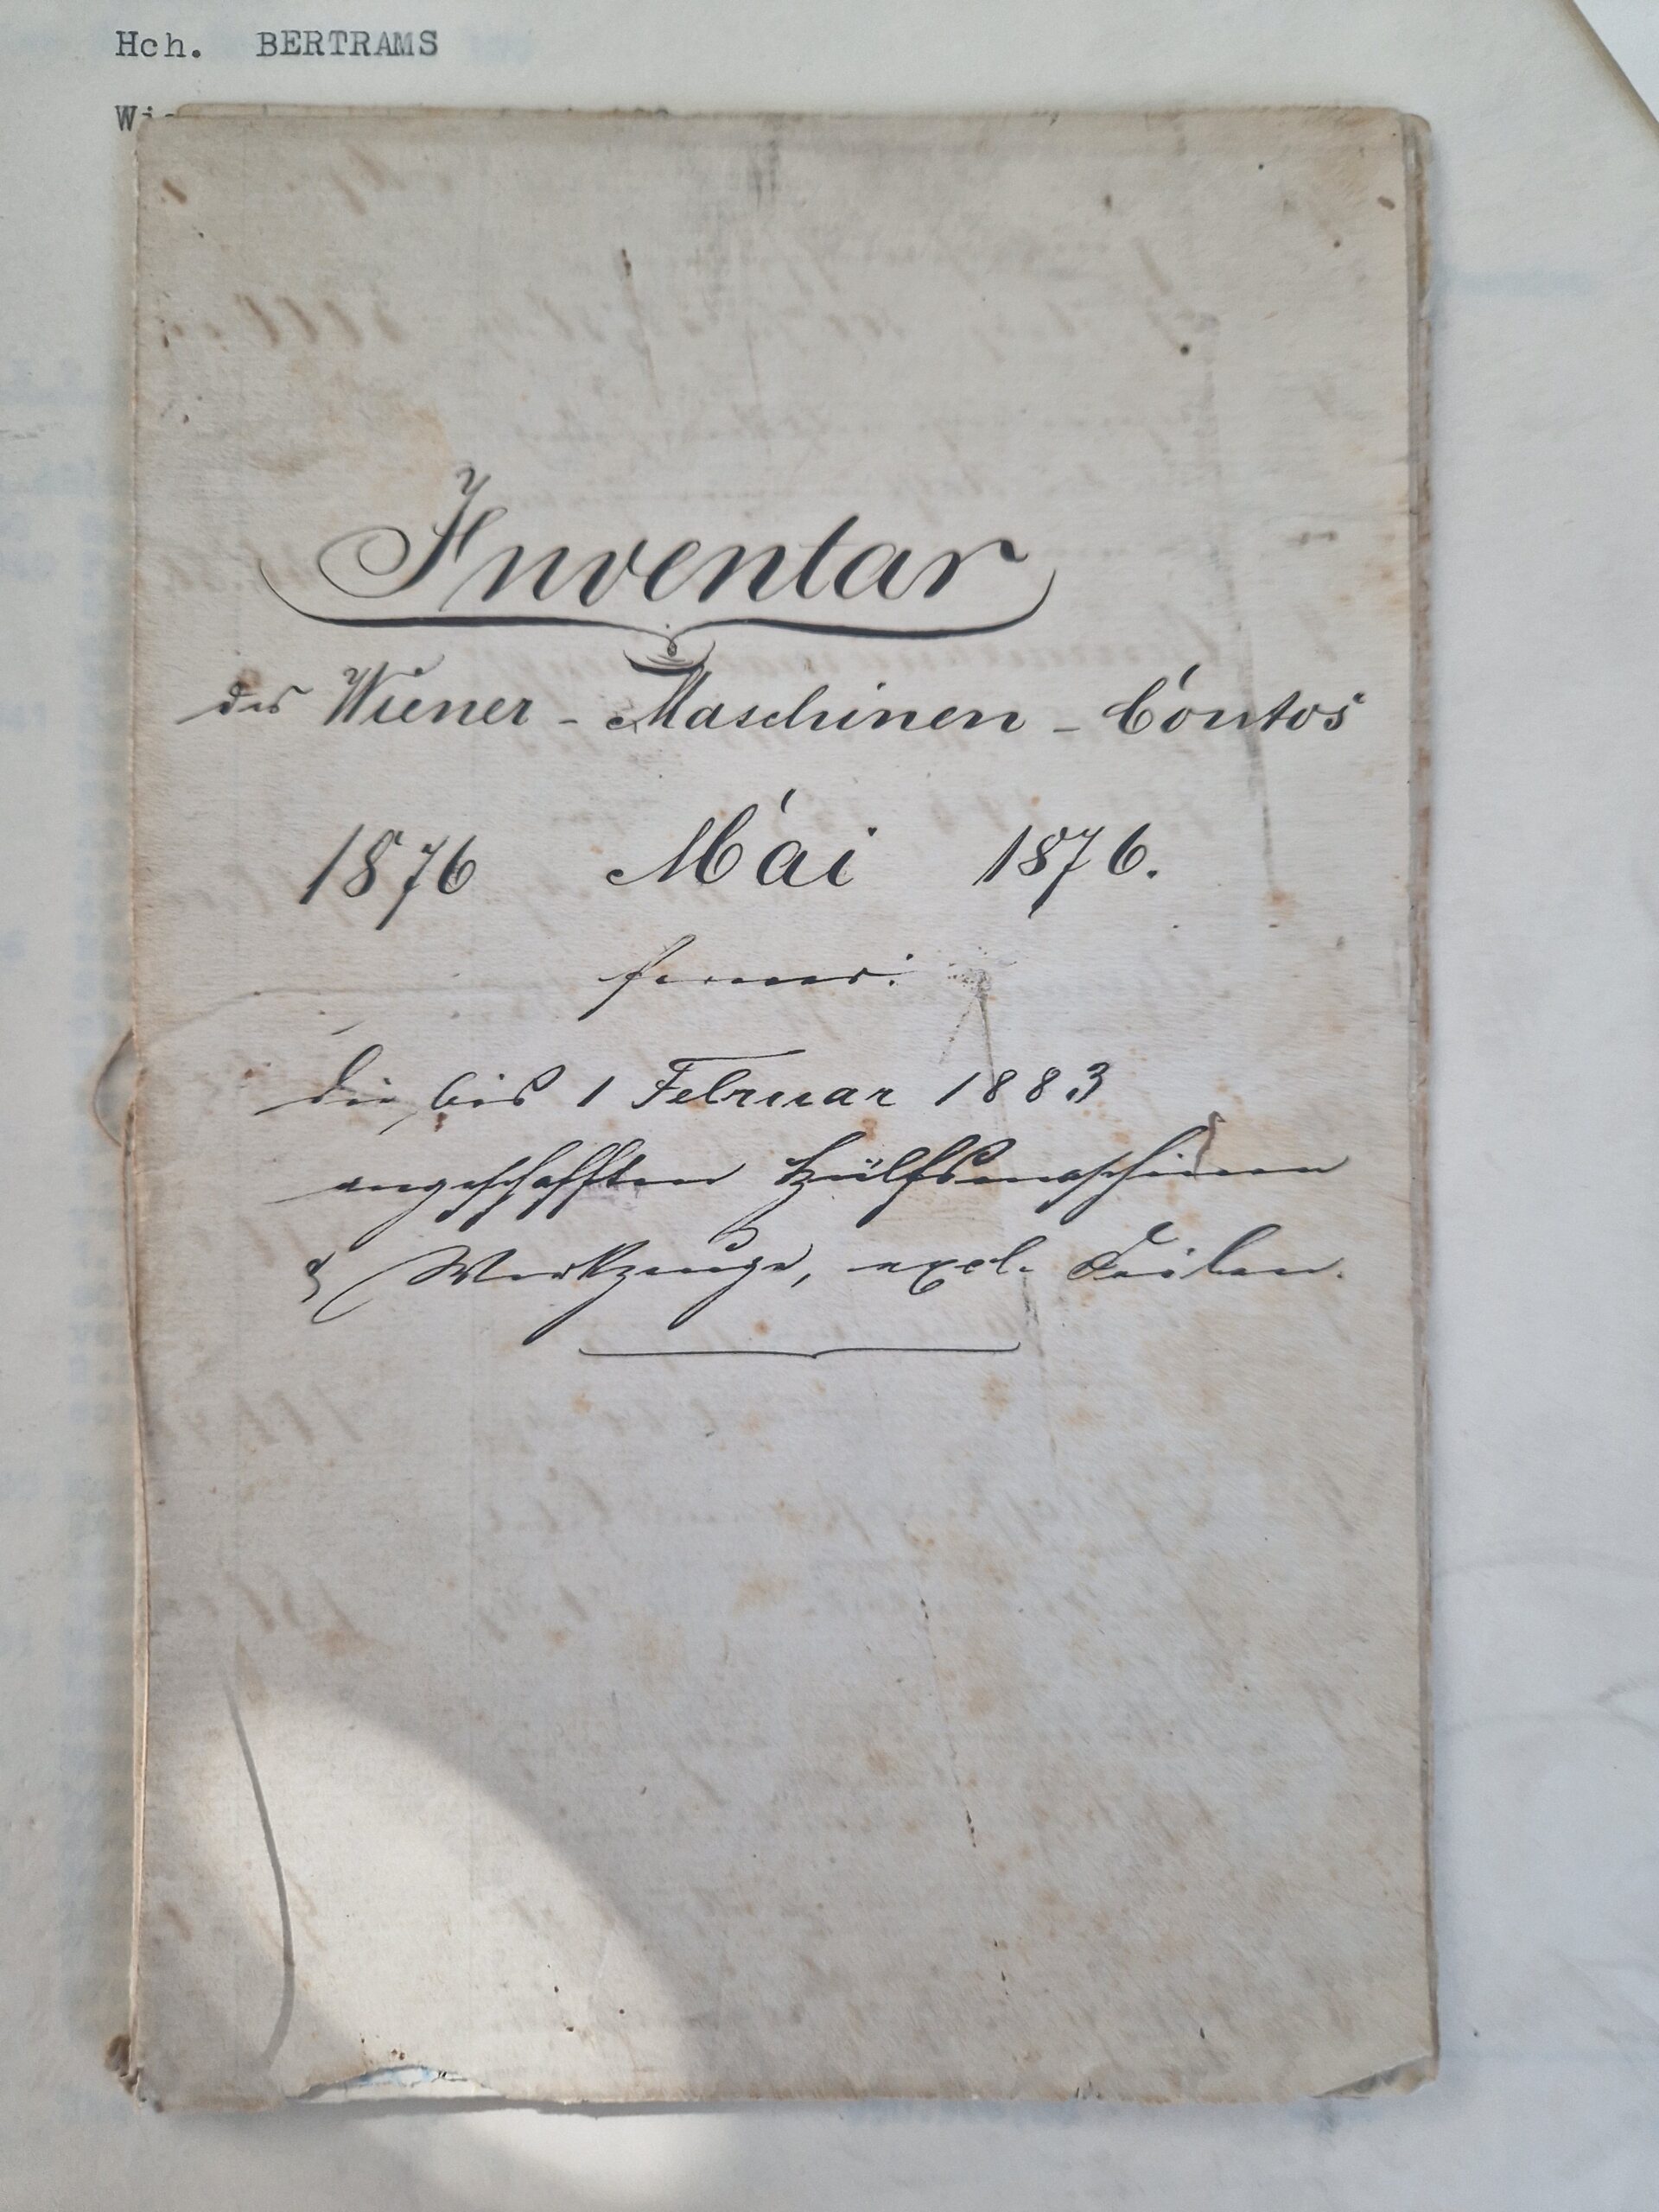 Hch. BERTRAMS
Inventar
des Wiener - Maschinen - Contos
1876 Mai 1876.
ferner:
die bis 1 Februar 1883
angeschafften Hülfsmaschinen
& Werkzeuge, excl. Feilen.